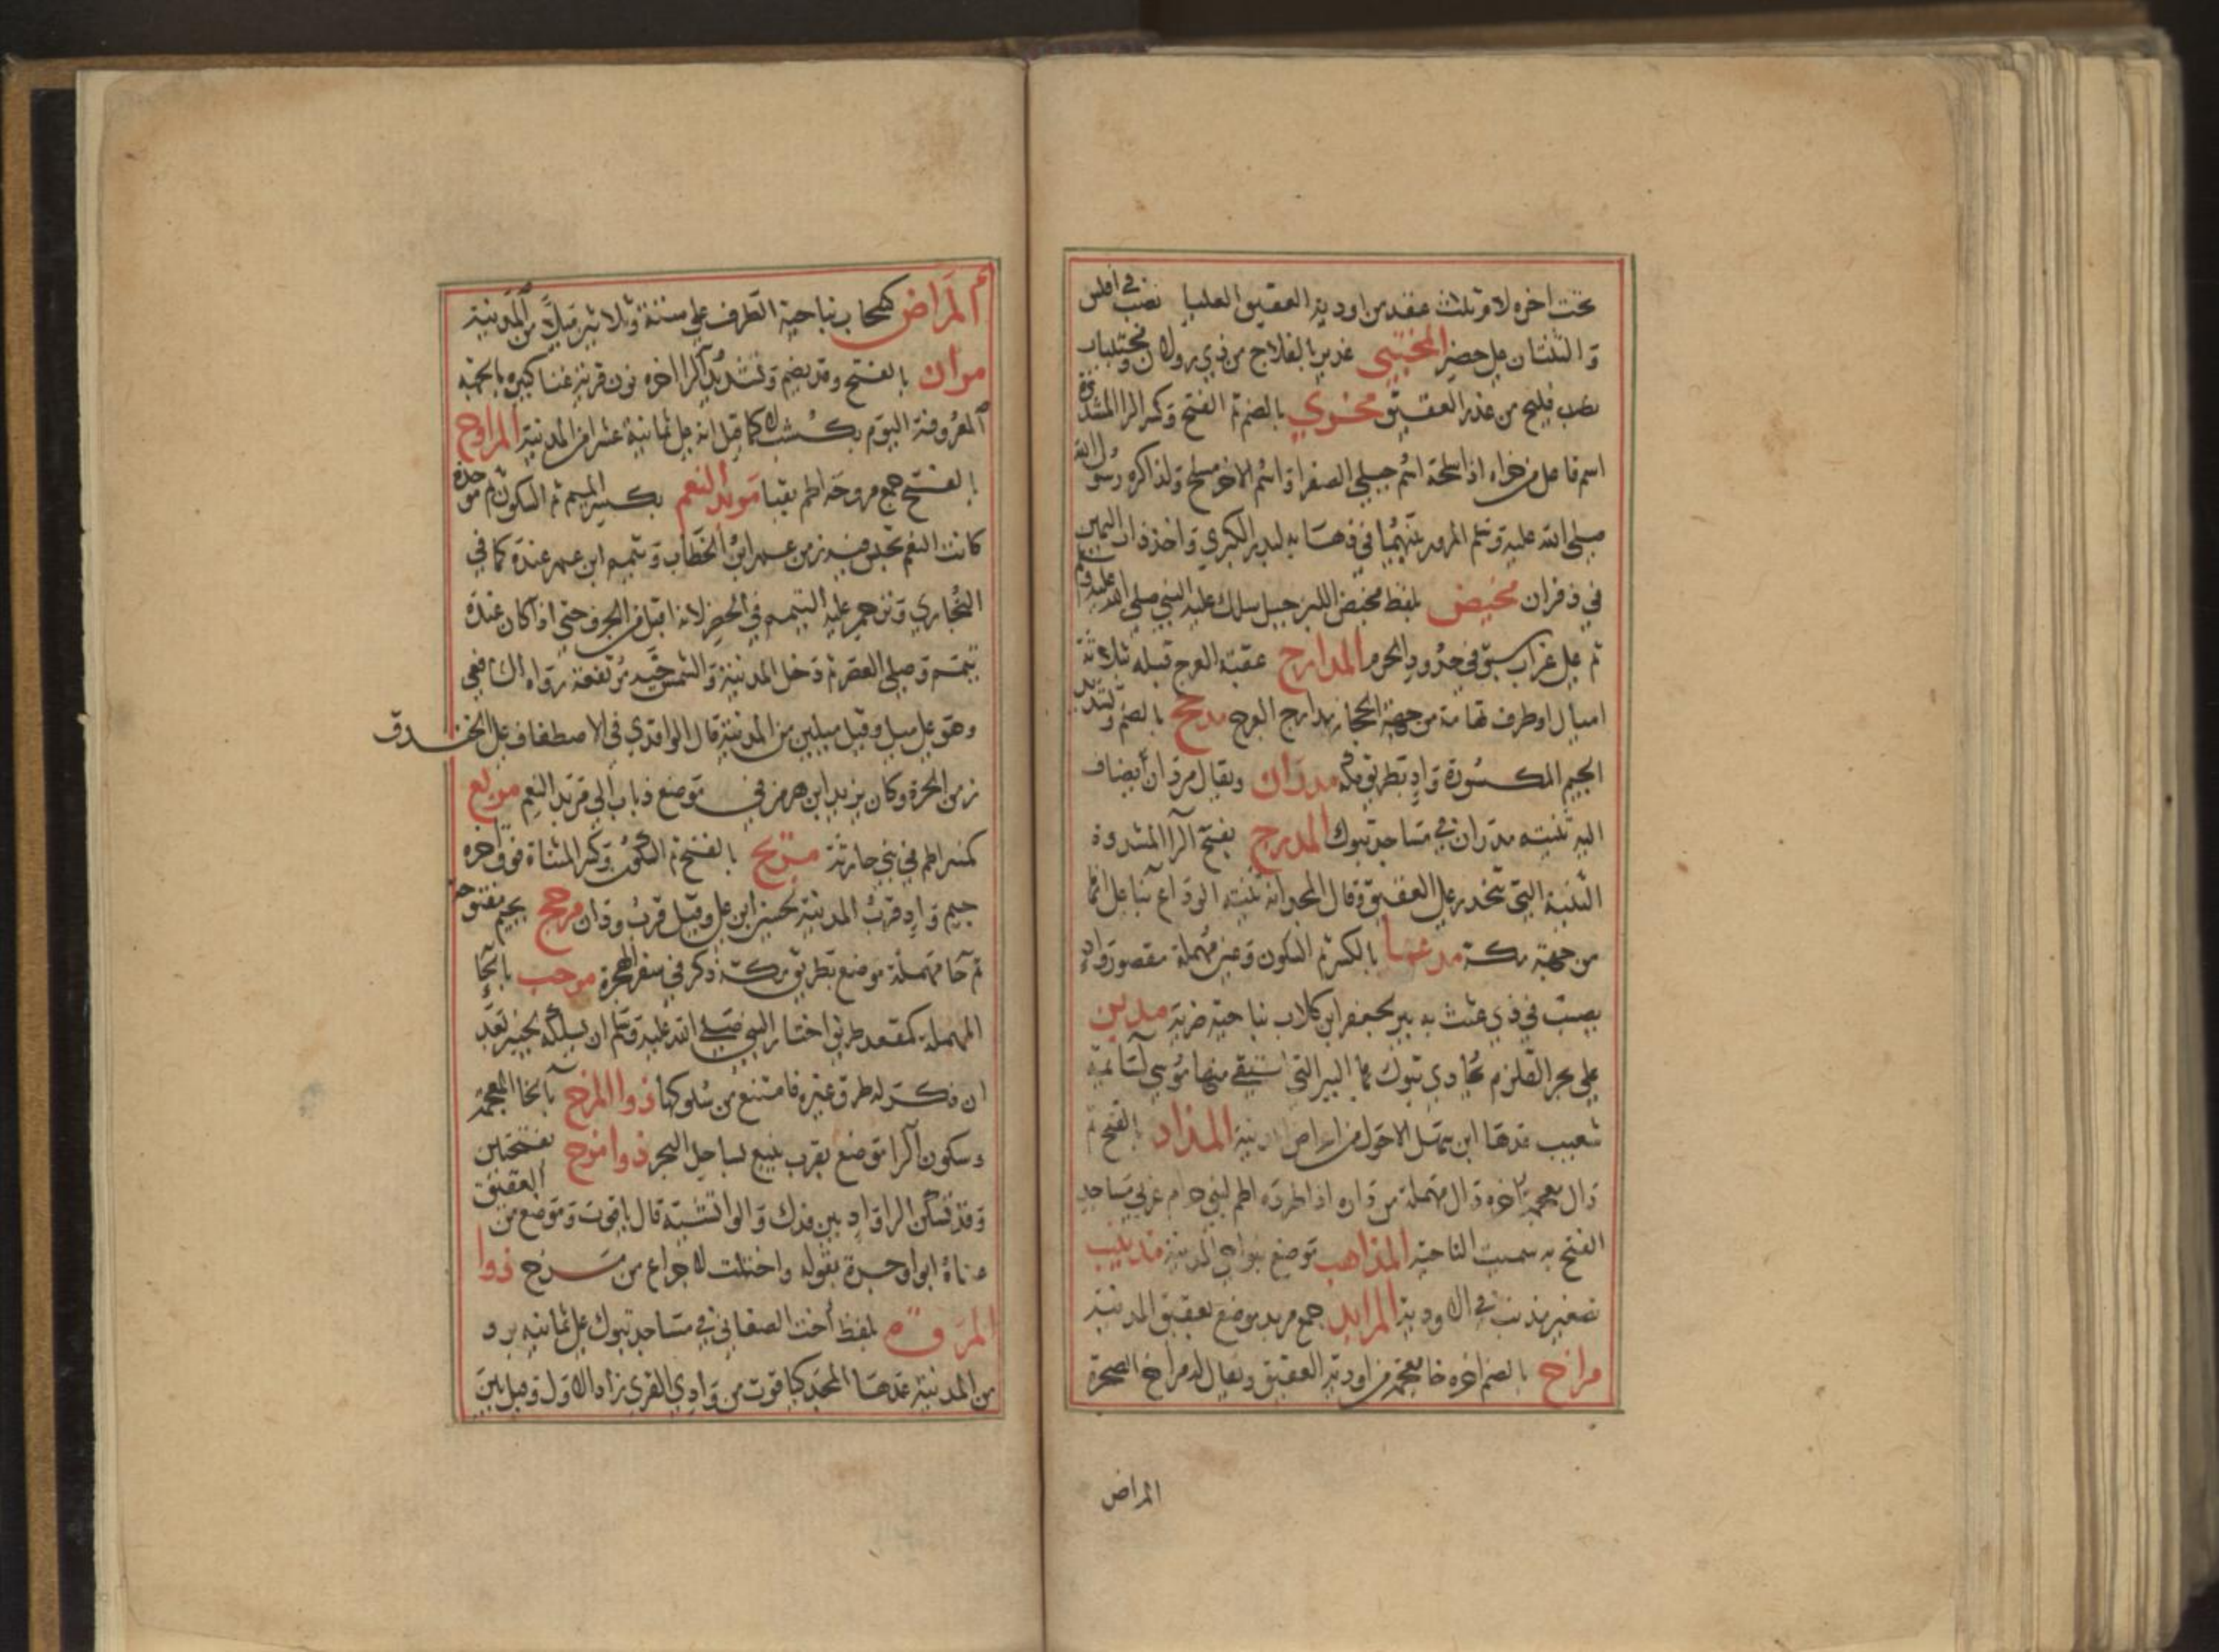 تحت اخره لام وثلث عقد من اودية العقيق العليا تصب في افلس
والثنتان على حضير المختبي غدير بالفلاج من ذي رولان ومختلبات
تصب فليج من غدر العقيق مخري بالضم ثم الفتح وكسر الرا المشددة
اسم فاعل من خراه اذا سلحه اسم جبلي الصفرا واسم الاخر مسلح ولذا كره رسول الله
صلى الله عليه وسلم المرور بينهما في ذهابه لبدر الكبرى واخذ ذات اليمين
في ذفران مخيض بلفظ مخيض اللبن جبل سلك عليه النبي صلى الله عليه وسلم
ثم على غراب سبق في حدود الحرم المدارج عقبة العرج قبله بثلاثة
اميال اوطرف تهامة من جهة الحجاز مدارج العرج مدجج بالضم وتشديد
الجيم المكسورة واد بطريق مكة مدران ويقال مردان يضاف
اليه ثنيته مدران في مساجد تبوك المدرج بفتح الرا المشددة
الثنية التي تنحدر على العقيق وقال المجد انه ثنية الوداع بنا على انها
من جهة مكة مدعا بالكسر ثم السكون وعين مهملة مقصور واد
يصب في ذي عثث به بير لجعفر ابن كلاب بناحية ضرية مدين
على بحر القلزم يحاذي تبوك بها البير التي استقى منها موسى لسائمة
شعيب عدها ابن سهل الاحول من اعراض المدينة المذاد بالفتح ثم
ذال معجمة اخره دال مهملة من ذاده اذا طرده اطم لبني حرام غربي مساجد
الفتح به سميت الناحية المذاهب موضع بنواحي المدينة مذينيب
تصغير مذنب في الاودية المرابد جمع مربد موضع بعقيق المدينة
مراخ بالضم اخره خا معجمة من اودية العقيق ويقال له مراخ الصحرة
المراض
المراض كسحاب بناحية الطرف على ستة وثلاثين ميلا من المدينة
مران بالفتح وقد يضم وتشديد الرا اخره نون قرية غنا كبيره بالجهة
المعروفة اليوم بكشب كما قيل انه على ثمانية عشر من المدينة المراوح
بالفتح جمع مروحه اطم بقبا مربد النعم بكسر الميم ثم السكون ثم موحدة
كانت النعم تحبس فيه زمن عمر ابن الخطاب وتيمم ابن عمر عنده كما في
البخاري وترجم عليه التيمم في الحضر لانه اقبل من الجرف حتى اذا كان عنده
تيمم وصلى العصر ثم دخل المدينة والشمس حية مرتفعة رواه الشافعي
وهو على ميل وقيل ميلين من المدينة قال الواقدي في الاصطفاف على الخندق
زمن الحرة وكان يزيد ابن هرمز في موضع ذباب الى مربد النعم مربع
كمنبر اطم في بني حارثة مرتج بالفتح ثم السكون وكسر المثناة فوق اخره
جيم واد قرب المدينة لحسين ابن علي وقيل قرب ودان مرجح بجيم مفتوحة
ثم حا مهملة موضع بطريق مكة ذكر في سفر الهجرة مرحب بالحا
المهملة كمقعد طريق اختار النبي صلى الله عليه وسلم ان يسلكه لخيبر بعد
ان ذكر له طرق غيره فامتنع من سلوكها ذوا المرخ بالخا المعجمة
وسكون الرا موضع بقرب ينبع بساحل البحر ذوا مرخ بفتحتين
وقد تسكن الرا واد بين فدك والوابشية قال ياقوت وموضع من العقيق
عناه ابو وجزة بقوله واحتلت لاجراع من مرخ ذوا
المروة بلفظ اخت الصفا في مساجد تبوك على ثمانية برد
من المدينة عدها المجد كياقوت من وادي القرى زاد الاول وقيل بين